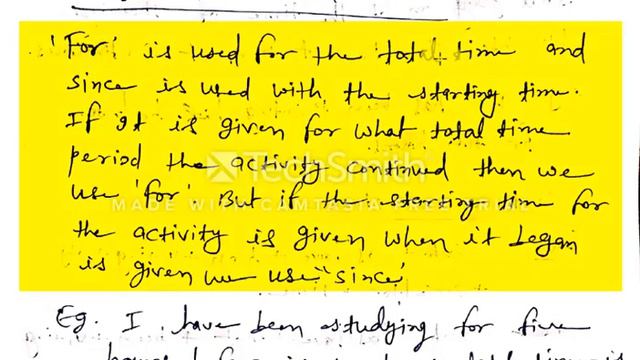 'For' is used for the total time and
since is used with the starting time.
If it is given for what total time
period the activity continued then we
use 'for'. But if the starting time for
the activity is given when it began
is given we use "since"
Eg. I have been studying for five
TechSmith
MADE WITH CAMTASIA FREE TRIAL